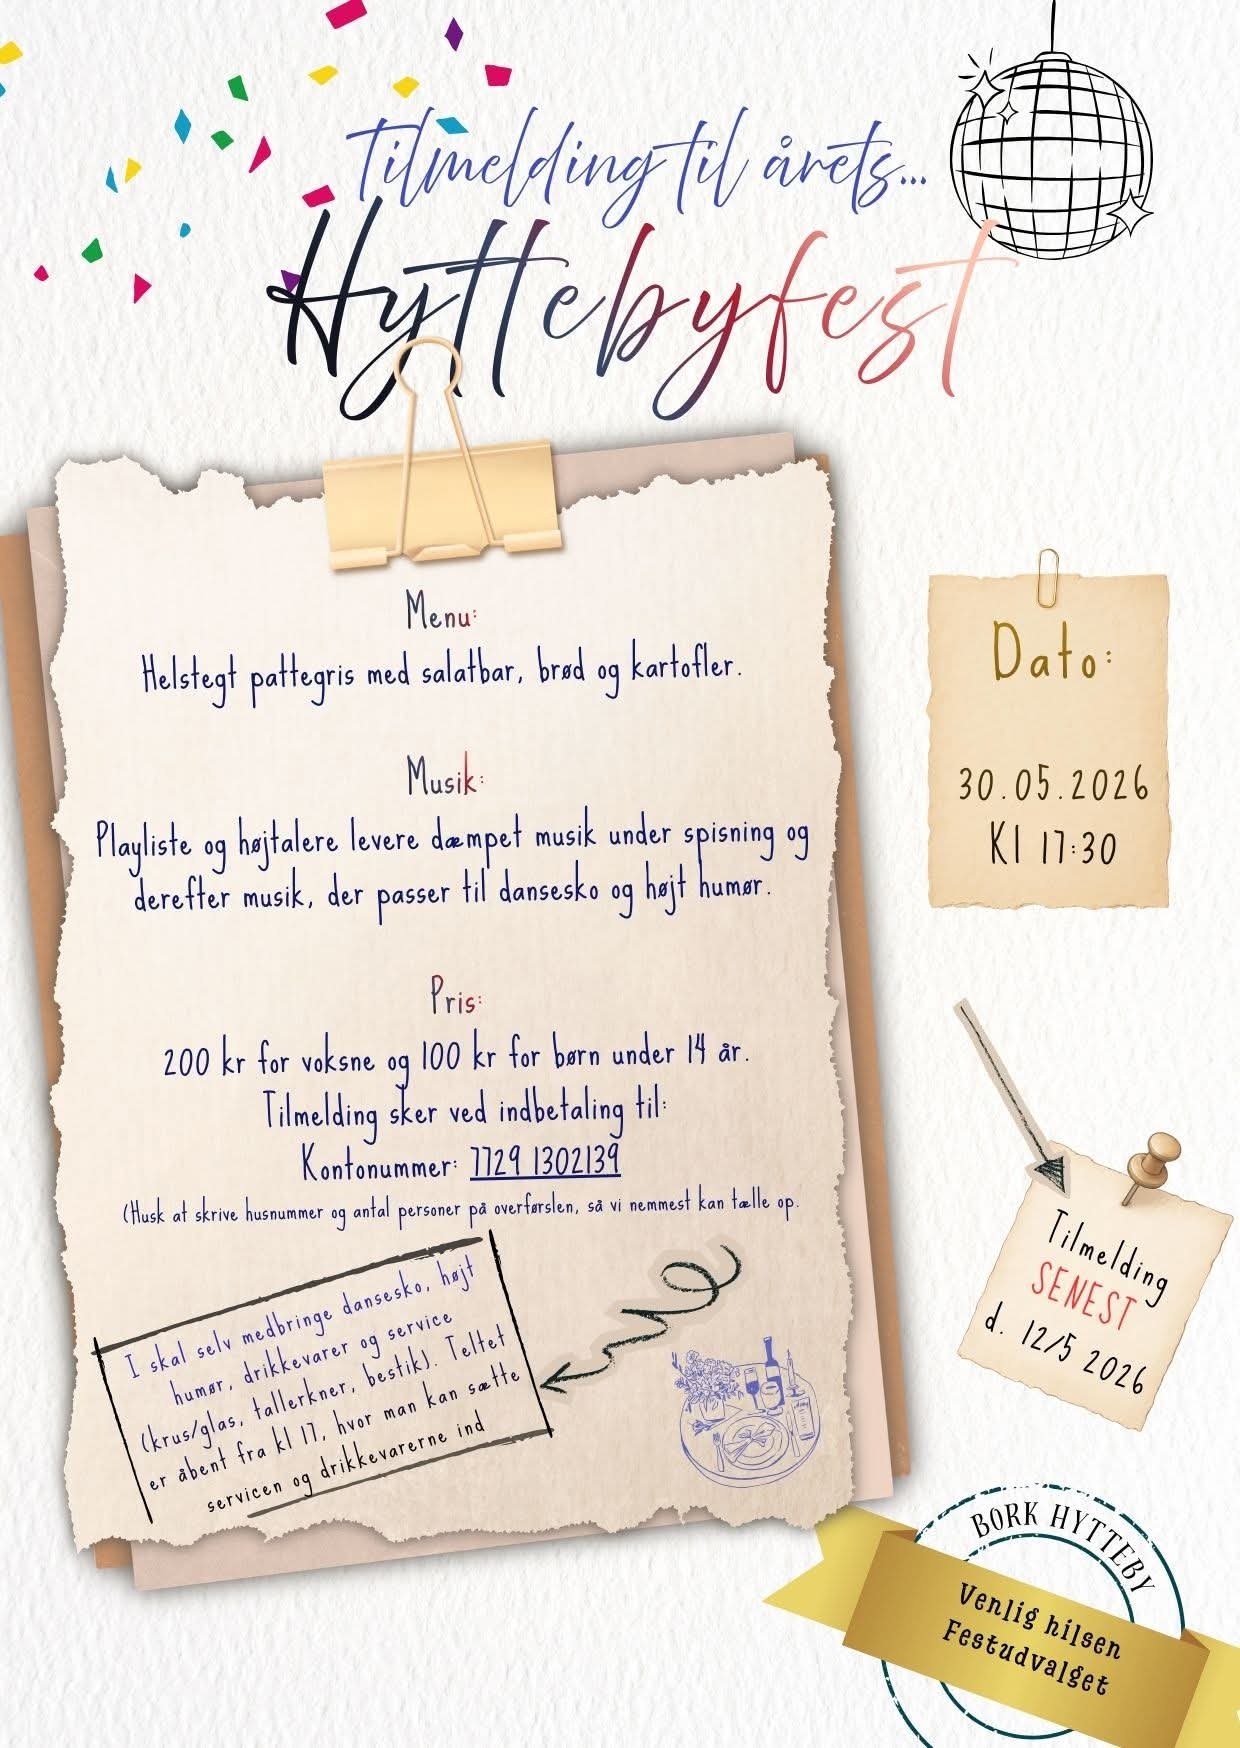 Tilmelding til årets...
Hyttebyfest
Menu:
Helstegt pattegris med salatbar, brød og kartofler.
Musik:
Playliste og højtalere levere dæmpet musik under spisning og
derefter musik, der passer til dansesko og højt humør.
Pris:
200 kr for voksne og 100 kr for børn under 14 år.
Tilmelding sker ved indbetaling til:
Kontonummer: 7729 1302139
(Husk at skrive husnummer og antal personer på overførslen, så vi nemmest kan tælle op.
I skal selv medbringe dansesko, højt
humør, drikkevarer og service
(krus/glas, tallerkner, bestik). Teltet
er åbent fra kl 17, hvor man kan sætte
servicen og drikkevarerne ind
Dato:
30.05.2026
Kl 17:30
Tilmelding
SENEST
d. 12/5 2026
BORK HYTTEBY
Venlig hilsen
Festudvalget